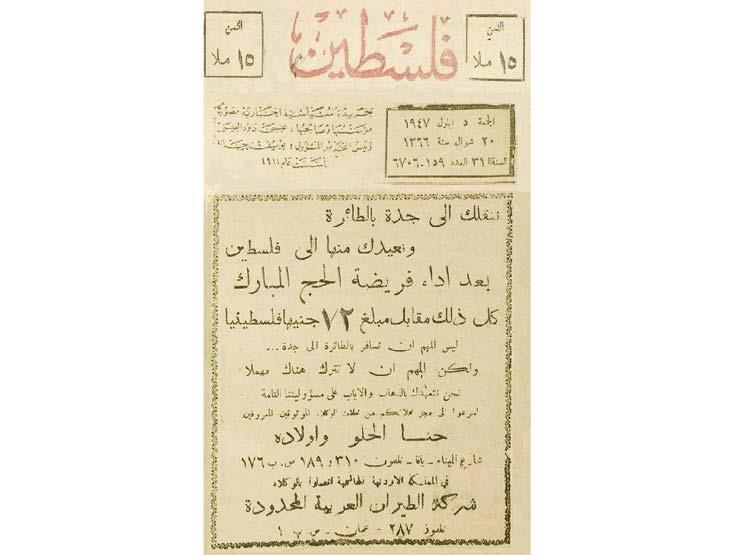 الثمن
١٥ ملا
فلسطين
الثمن
١٥ ملا
الجمعة ٥ ايلول ١٩٤٧
٢٠ شوال سنة ١٣٦٦
السنة ٣١ العدد ١٥٩-٦٧٠٦
جريدة سياسية اخبارية مصورة
مؤسسها وصاحبها: عيسى داود العيسى
رئيس التحرير المسؤول: يوسف حنا
أسست عام ١٩١١
ننقلك الى جدة بالطائرة
ونعيدك منها الى فلسطين
بعد اداء فريضة الحج المبارك
كل ذلك مقابل مبلغ ٧٢ جنيها فلسطينيا
ليس المهم ان تسافر بالطائرة الى جدة ...
ولكن المهم ان لا تترك هناك مهملا
نحن نتعهدك بالذهاب والاياب على مسؤوليتنا التامة
اسرعوا الى حجز محلاتكم من محلات الوكلاء الموثوقين المعروفين
حنا الحلو واولاده
شارع الميناء - يافا - تلفون ٣١٠ و ١٨٩ ص. ب ١٧٦
في المملكة الاردنية الهاشمية اتصلوا بالوكلاء
شركة الطيران العربية المحدودة
تلفون ٢٨٧ - عمان - ص ب ١